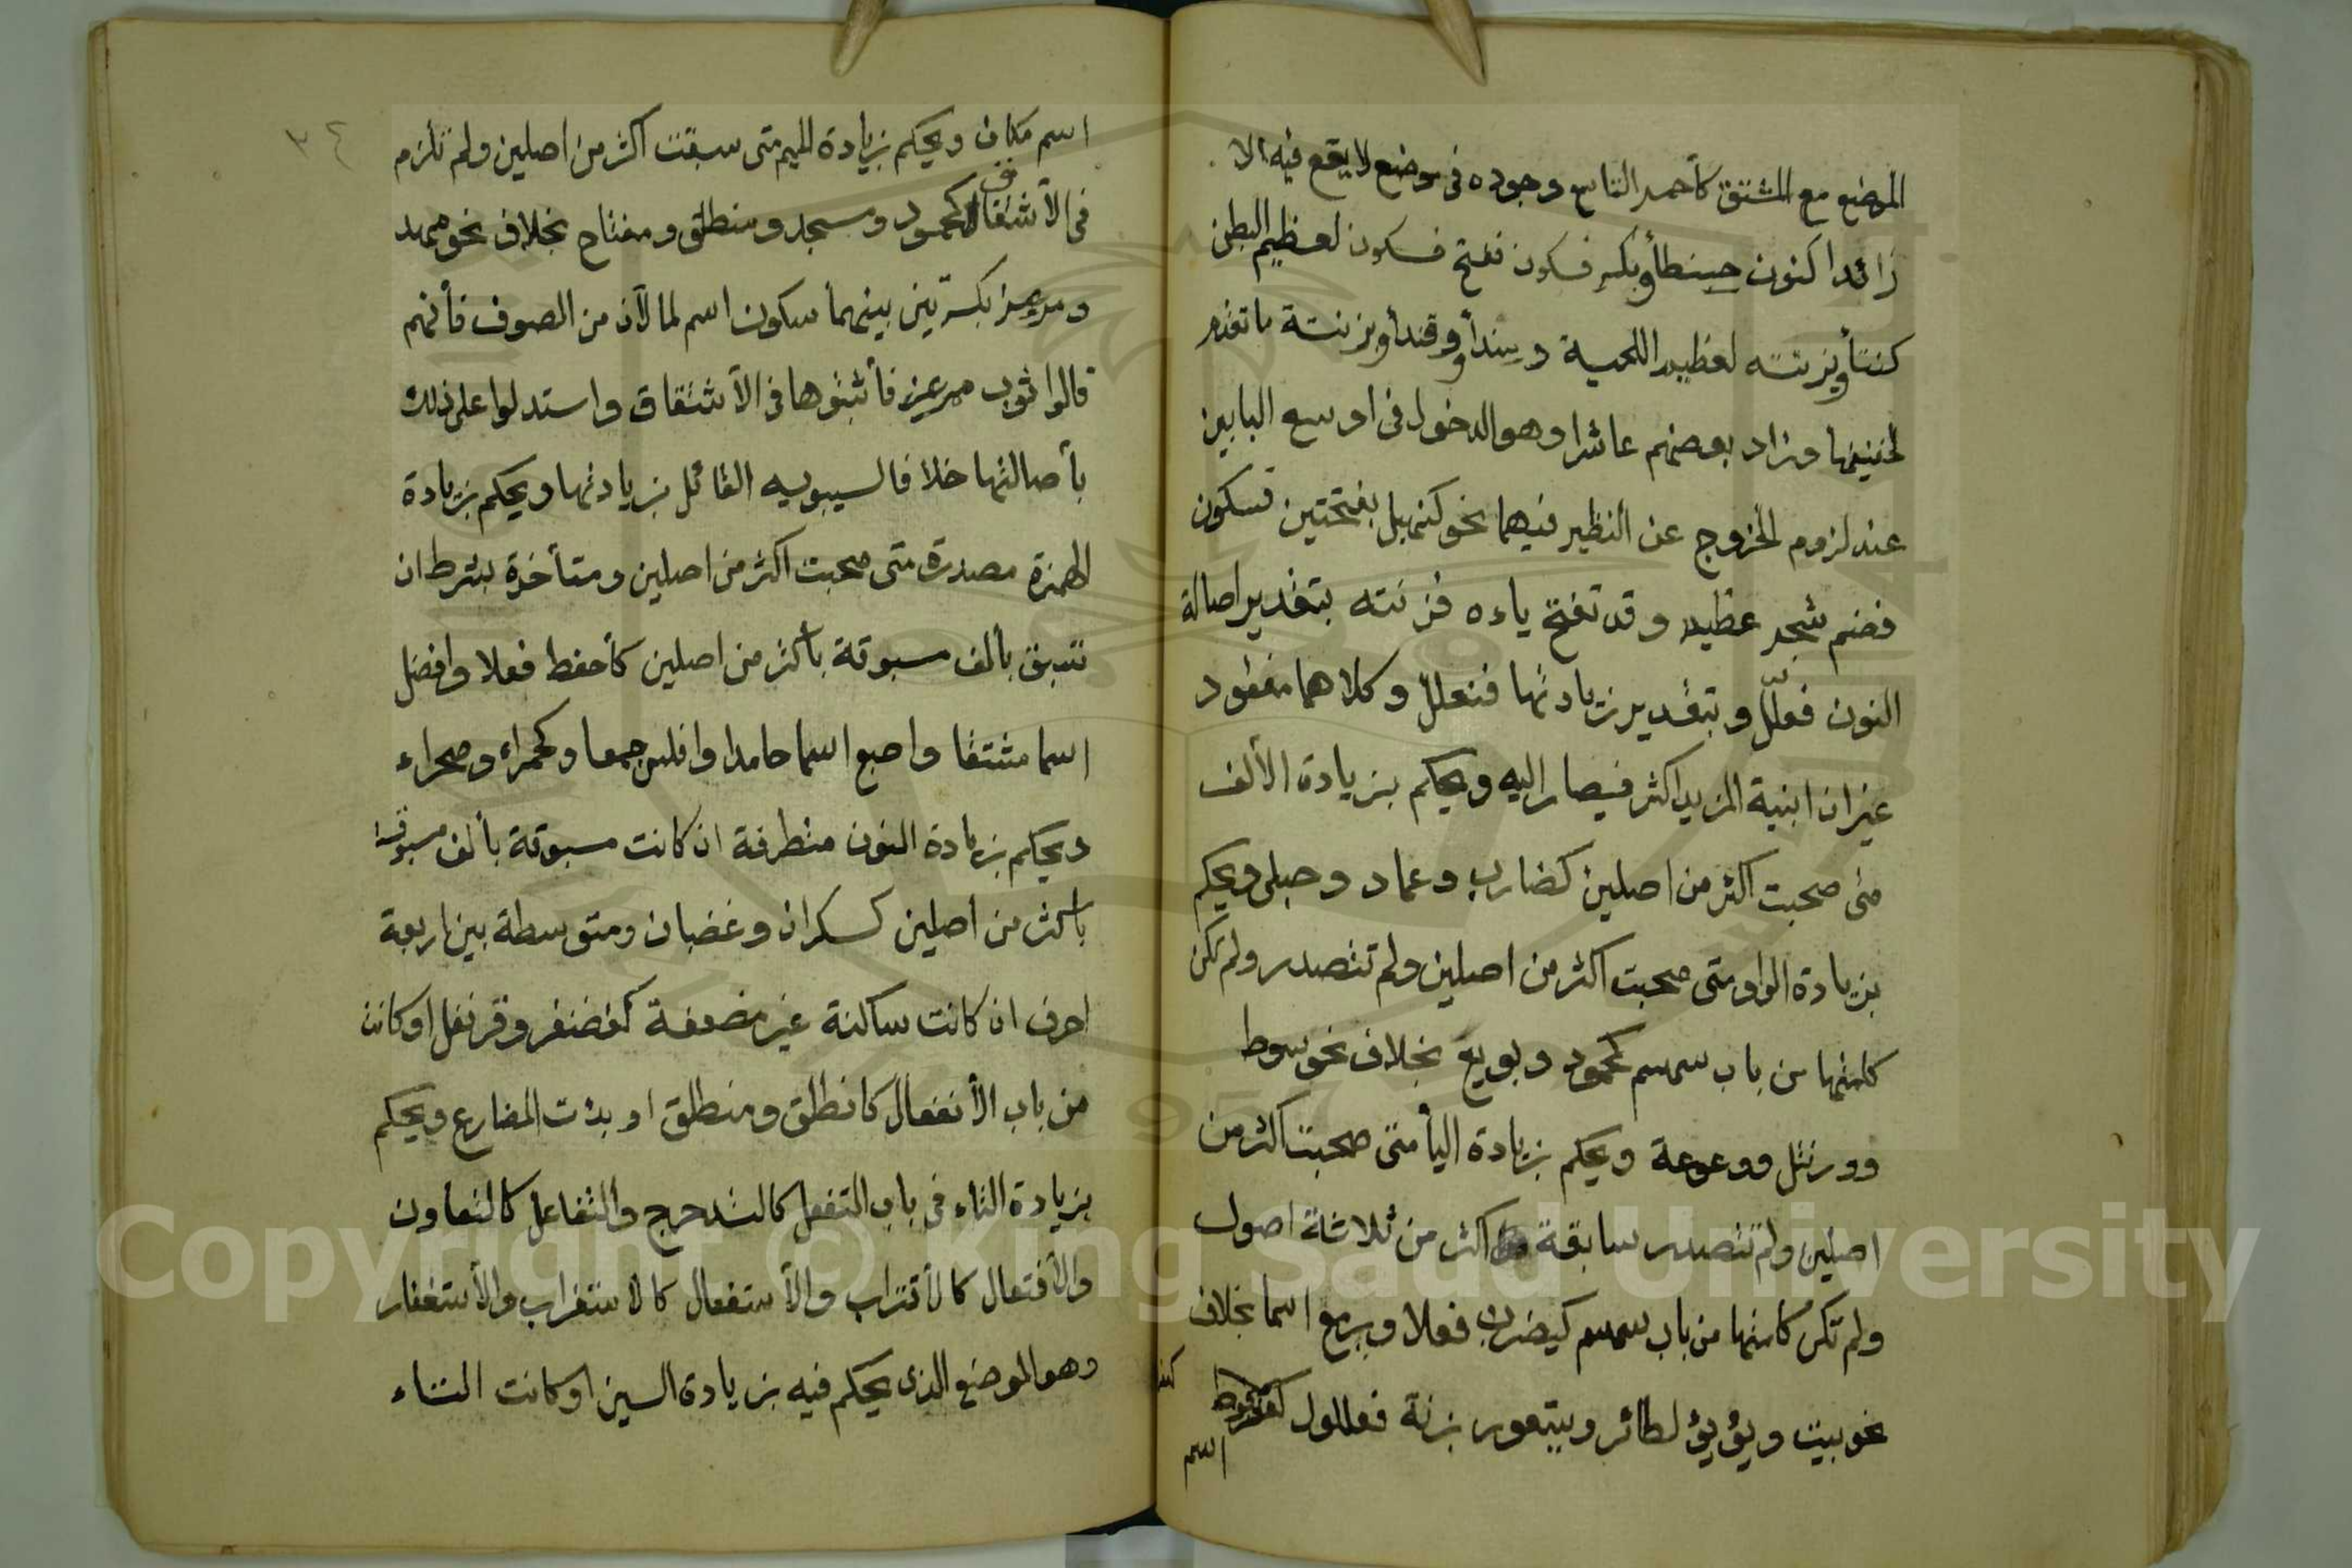 الموضع مع المشتق كأحمد التاسع وجوده فى موضع لا يقع فيه الا
زائدا كنون حنطأو بكسر فسكون ففتح فسكون لعظيم البطن
كنتأو بزنته لعظيم اللحية وسندأو وقندأو بزنة ما تقدم
لخفيفها وزاد بعضهم عاشرا وهو الدخول فى اوسع البابين
عند لزوم الخروج عن النظير فيهما نحو كنهبل بفتحتين فسكون
فضم شجر عظيم وقد تفتح ياءه فزنته بتقدير اصالة
النون فعلّل وبتقدير زيادتها فنعلل وكلاهما مفقود
غيران ابنية المزيد اكثر فيصار اليه ويحكم بزيادة الألف
متى صحبت اكثر من اصلين كضارب وعماد وحبلى ويحكم
بزيادة الواو متى صحبت اكثر من اصلين ولم تتصدر ولم تكن
كلمتها من باب سمسم كمحمود وبويع بخلاف نحو سوط
وورنتل ووعوعة ويحكم بزيادة اليأ متى صحبت اكثر من
اصلين ولم تتصدر سابقة اكثر من ثلاثة اصول
ولم تكن كلمتها من باب سمسم كيضرب فعلا ويرمع اسما بخلاف
نحو بيت ويؤيؤ لطائر ويستعور بزنة فعللول كعضرفوط
اسم
٣٤
اسم مكان ويحكم بزيادة الميم متى سبقت اكثر من اصلين ولم تلزم
فى الأشتقاق كمحمود ومسجد ومنطلق ومفتاح بخلاف نحو مهد
ومرعز بكسرتين بينهما سكون اسم لما لان من الصوف فأنهم
قالوا ثوب ممرعز فأثبتوها فى الأشتقاق واستدلوا على ذلك
بأصالتها خلافا لسيبويه القائل بزيادتها ويحكم بزيادة
الهمزة مصدرة متى صحبت اكثر من اصلين ومتأخرة بشرط ان
تسبق بألف مسبوقة بأكثر من اصلين كأحفظ فعلا وافضل
اسما مشتقا واصبع اسما جامدا وافلس جمعا وكحمراء وصحراء
ويحكم بزيادة النون متطرفة ان كانت مسبوقة بألف مسبوقة
بأكثر من اصلين كسكران وغضبان ومتوسطة بين اربعة
احرف ان كانت ساكنة غير مضعفة كغضنفر وقرنفل او كانت
من باب الأنفعال كانطلق ومنطلق او بدئت المضارع ويحكم
بزيادة التاء فى باب التفعل كالتدحرج والتفاعل كالتعاون
والأفتعال كالأقتراب والأستفعال كالاستغراب والأستغفار
وهو الموضع الذى يحكم فيه بزيادة السين او كانت التاء
Copyright © King Saud University